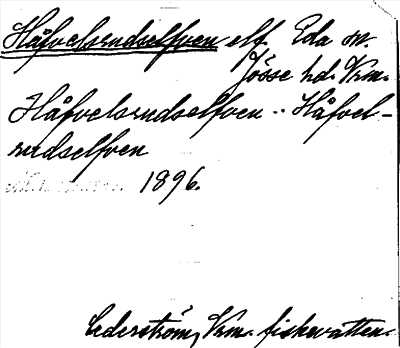 Håfvelsrudselfven elf, Eda sn.
Jösse hd. Vrm.
Håfvelsrudselfven .. Håfvel-
rudselfven
1896.
Cederström, Vrm. fiskevatten.